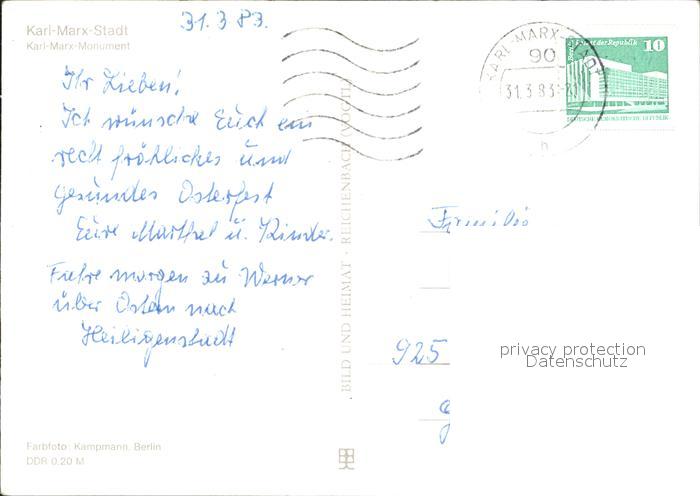 Karl-Marx-Stadt
Karl-Marx-Monument
31.3.83.
Ihr Lieben!
Ich wünsche Euch ein
recht fröhliches und
gesundes Osterfest
Eure Marthel u. Kinder.
Fahre morgen zu Werner
über Ostern nach
Heiligenstadt
Farbfoto: Kampmann, Berlin
DDR 0,20 M
BILD UND HEIMAT · REICHENBACH (VOGTL)
KARL-MARX-STADT
90
31.3.83
h
Palast der Republik
10
DEUTSCHE DEMOKRATISCHE REPUBLIK
Familie
925
privacy protection
Datenschutz